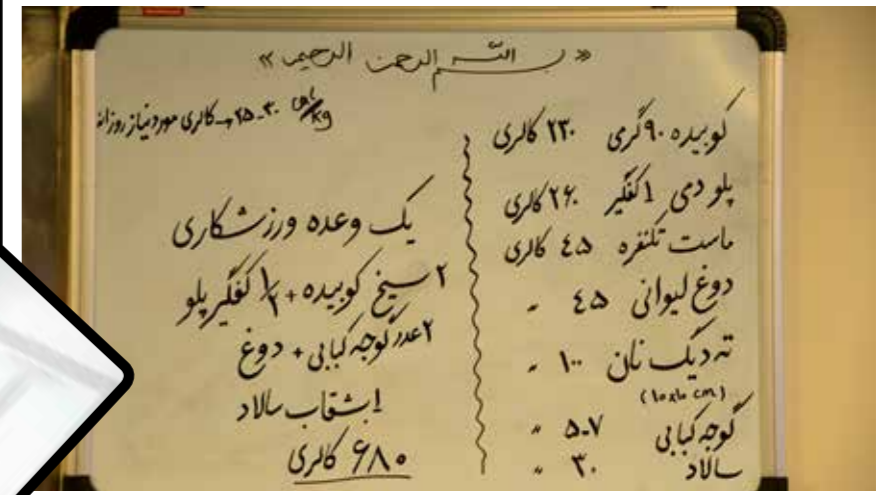 « بسم الله الرحمن الرحیم »
کوبیده ۹۰ گرمی ۲۳۰ کالری
پلو دمی ۱ کفگیر ۲۶۰ کالری
ماست تکنفره ۴۵ کالری
دوغ لیوانی ۴۵ "
ته دیگ نان ۱۰۰ "
(10x10 cm)
گوجه کبابی ۵-۷ "
سالاد ۳۰ "
cal/kg ۲۵-۳۰ → کالری مورد نیاز روزانه
یک وعده ورزشکاری
۲ سیخ کوبیده + ۱/۲ کفگیر پلو
۲ عدد گوجه کبابی + دوغ
۱ بشقاب سالاد
۶۸۰ کالری